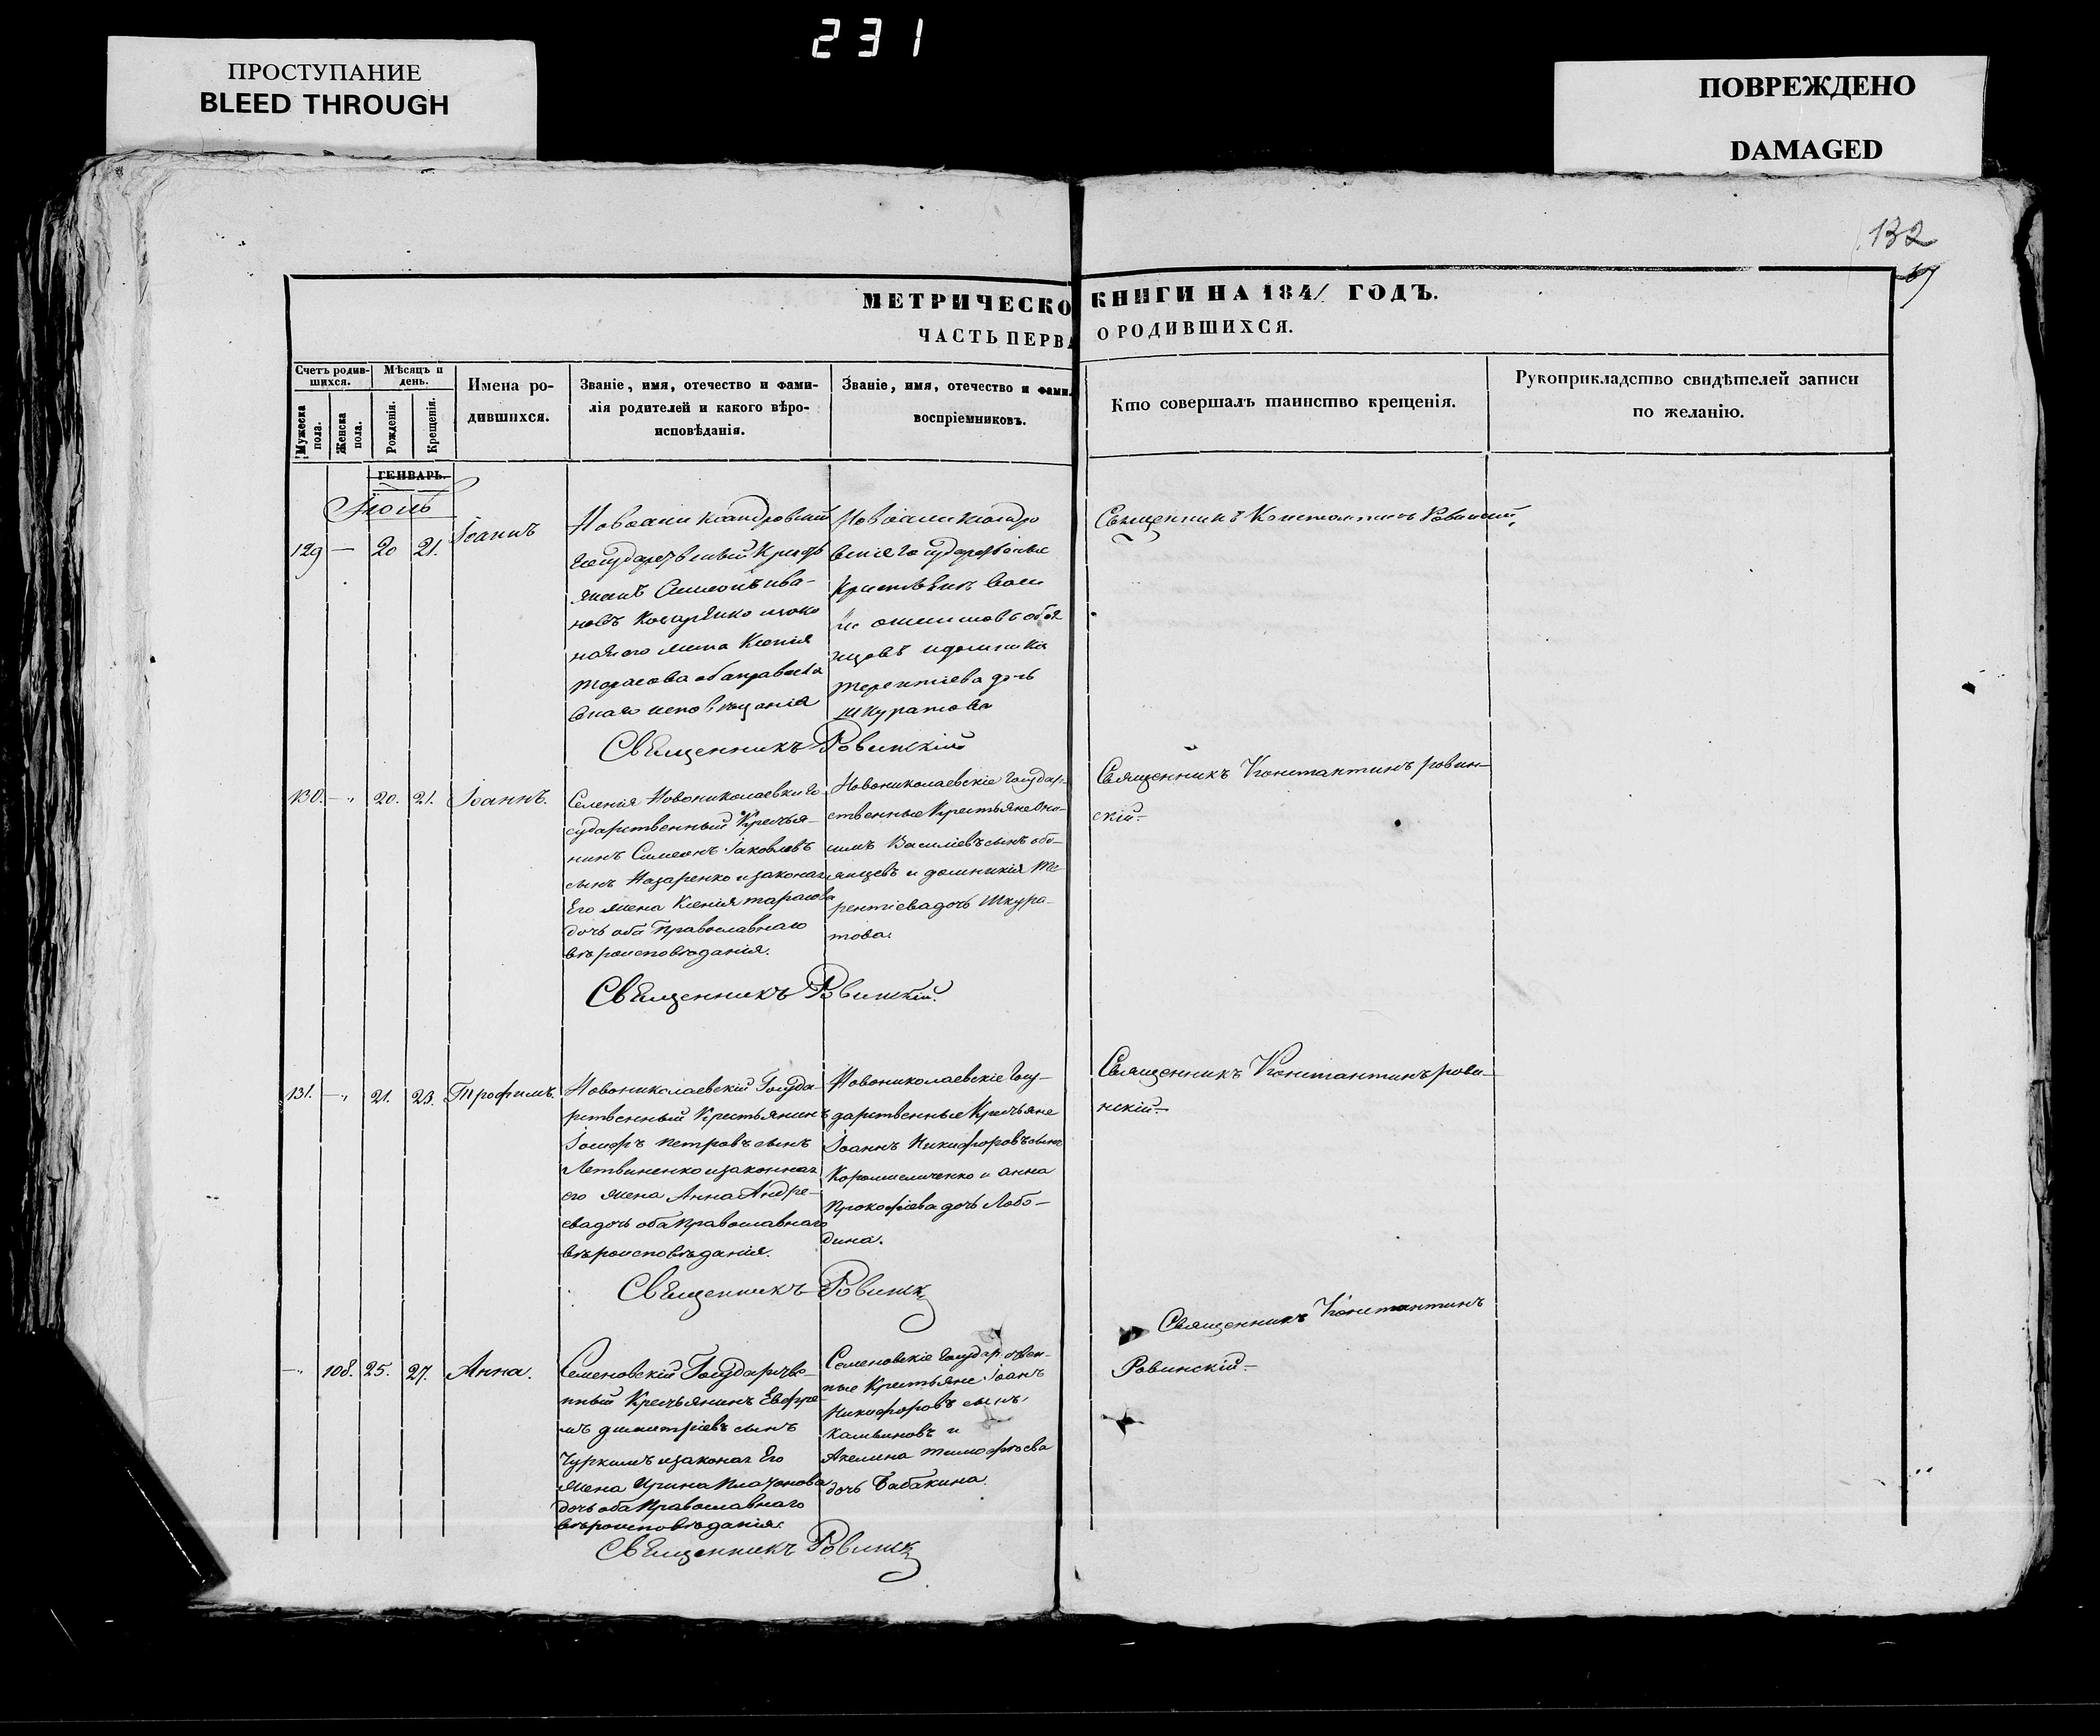 231
ПРОСТУПАНИЕ
BLEED THROUGH
ПОВРЕЖДЕНО
DAMAGED
132
МЕТРИЧЕСКО КНИГИ НА 1841 ГОДЪ.
ЧАСТЬ ПЕРВА О РОДИВШИХСЯ.
Счетъ родив-
шихся.
Мужеска
пола.
Женска
пола.
Мѣсяцъ и
день.
Рожденія.
Крещенія.
Имена ро-
дившихся.
Званіе, имя, отечество и фами-
лія родителей и какого вѣро-
исповѣданія.
Званіе, имя, отечество и фами
воспріемниковъ.
Кто совершалъ таинство крещенія.
Рукоприкладство свидѣтелей записи
по желанію.
ГЕНВАРЬ.
Іюль
129 — 20 21.
Іоаннъ
Государственный Крестя
Симеонъ ива-
новъ
его жена Ксенія
Тарасова оба православ
наго исповѣданія
Государственые
Крестьяне
терентіева дочь
шкуратова
Священникъ Константинъ Ровинскій,
Священникъ Ровинскій
130. — „ 20. 21. Іоаннъ.
Селенія Новониколаевки Го-
сударственный Крестья-
нинъ Симеонъ Іаковлевъ
сынъ Назаренко и законая
Его жена Ксенія тарасова
дочь оба Православнаго
вѣроисповѣданія.
Новониколаевскіе Государ-
ственные Крестьяне Они-
симъ Василіевъ сынъ обо-
янцевъ и домникія Те-
рентіева дочь Шкура-
това.
Священникъ Константинъ ровин-
скій.-
Священникъ Ровинскій.
131. — „ 21. 23. Трофимъ.
Новониколаевскій Госуда-
рственный Крестьянинъ
Іосифъ петровъ сынъ
Летвиненко и законная
его жена Анна Андре-
ева дочь оба Православнаго
вѣроисповѣданія.
Новониколаевскіе Госу-
дарственные Крестьяне
Іоаннъ Никифоровъ сынъ
и анна
Прокофіева дочь Лобо-
дина.
Священникъ Константинъ рови-
нскій.-
Священникъ Ровинск
— „ 108. 25. 27. Анна.
Семеновскій Государстве-
нный Крестьянинъ Евфре
мъ димитріевъ сынъ
Чуркинъ и законая Его
жена Ирина Платонова
дочь оба Православнаго
вѣроисповѣданія.
Семеновскіе Государствен-
ные Крестьяне Іоанъ
Никифоровъ сынъ
и
Акелина тимофѣева
дочь Бабакина.
Священникъ Константинъ
Ровинскій.-
Священникъ Ровинск